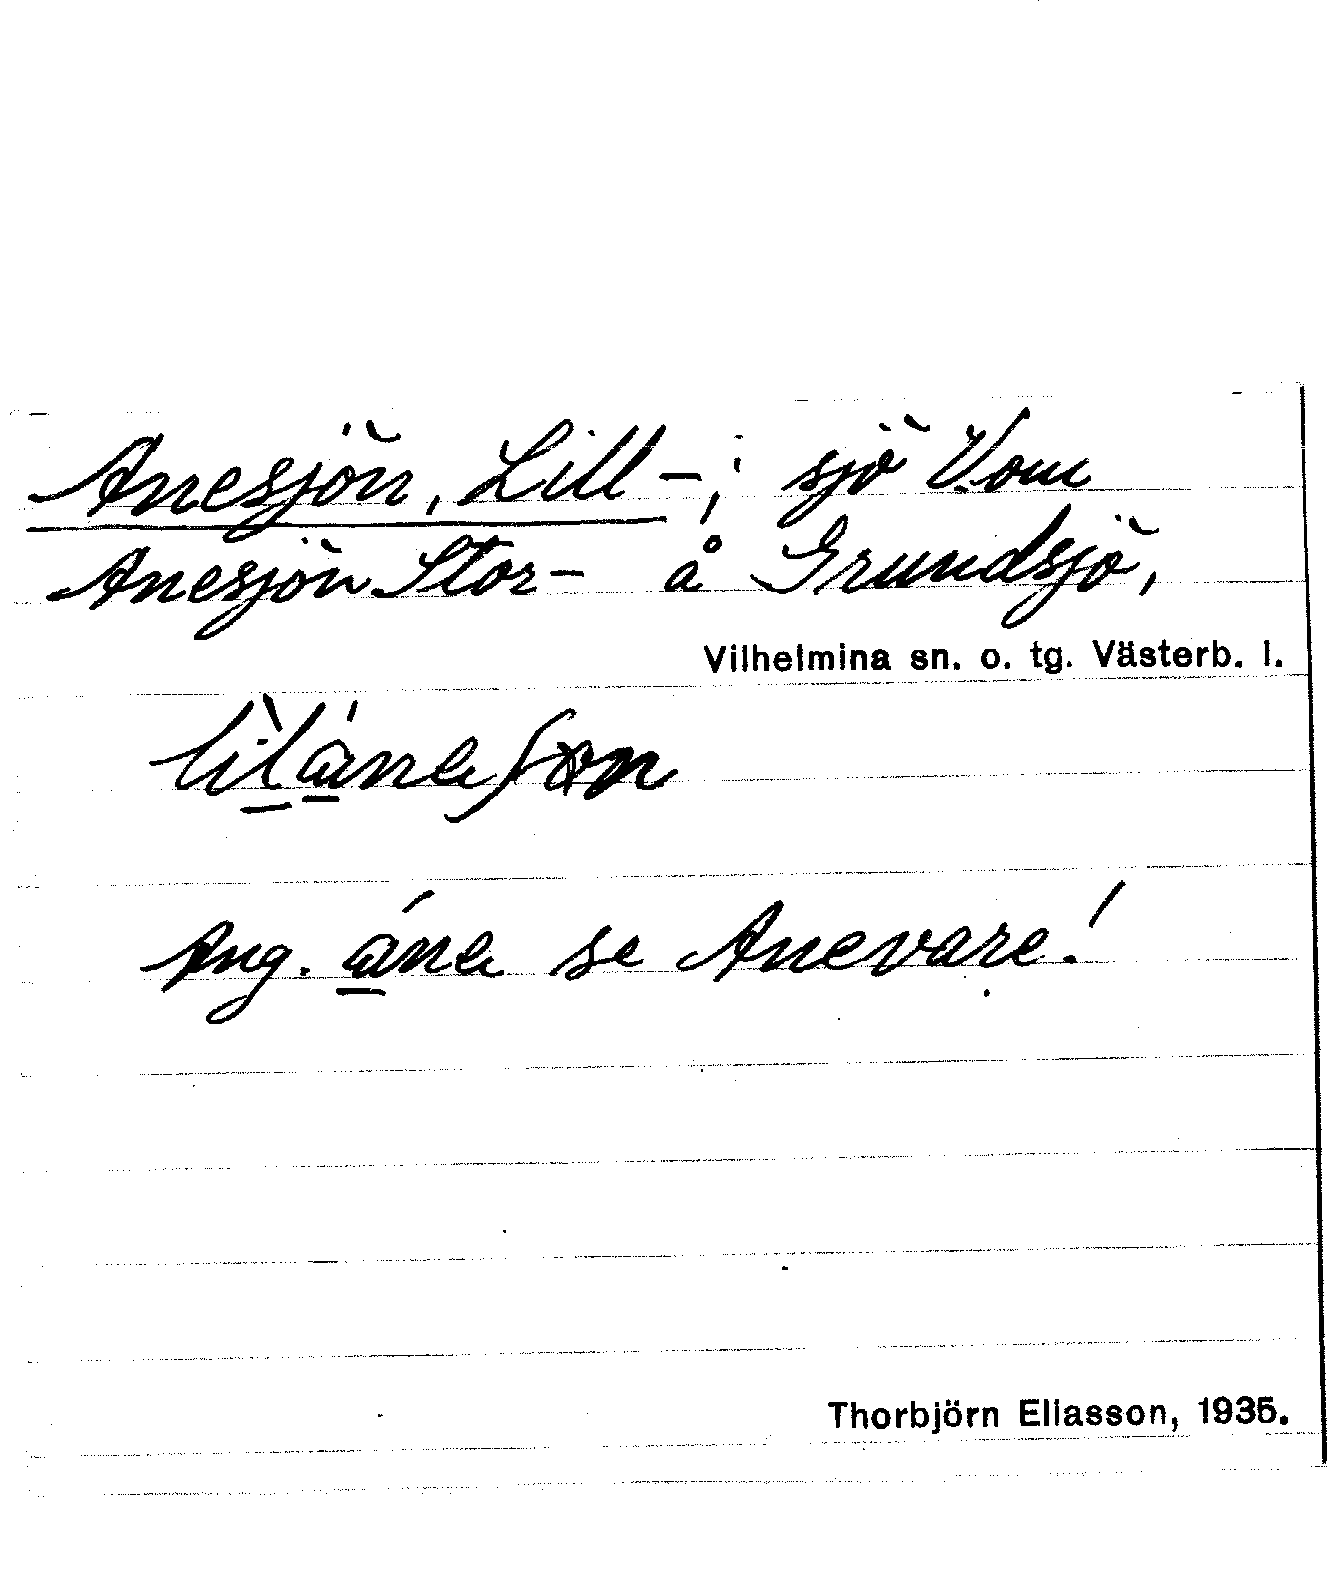 Anesjön, Lill-; sjö V. om
Anesjön Stor- å Grundsjö,
Vilhelmina sn. o. tg. Västerb. l.
Ang. áne se Anevare!
Thorbjörn Eliasson, 1935.